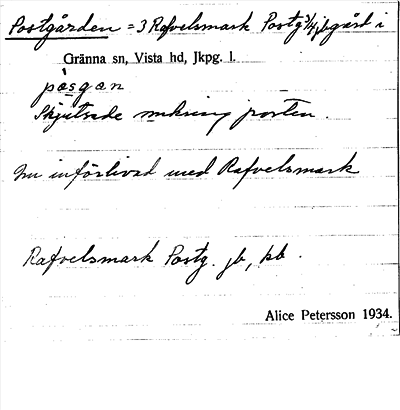 Postgården = 3 Rafvelsmark Postg 3/4 jbgård i
Gränna sn, Vista hd, Jkpg. l.
påsgan
Skjutsade omkring posten.
Nu införlivad med Rafvelsmark
Rafvelsmark Postg. jb, kb.
Alice Petersson 1934.